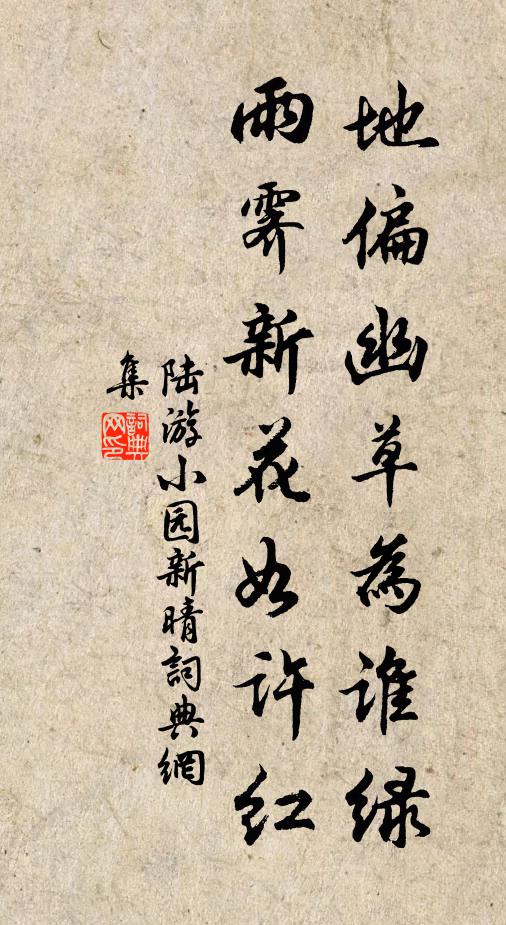 地偏幽草為谁绿
雨霁新花如许红
陆游小园新晴詞典網
集
詞典
网印